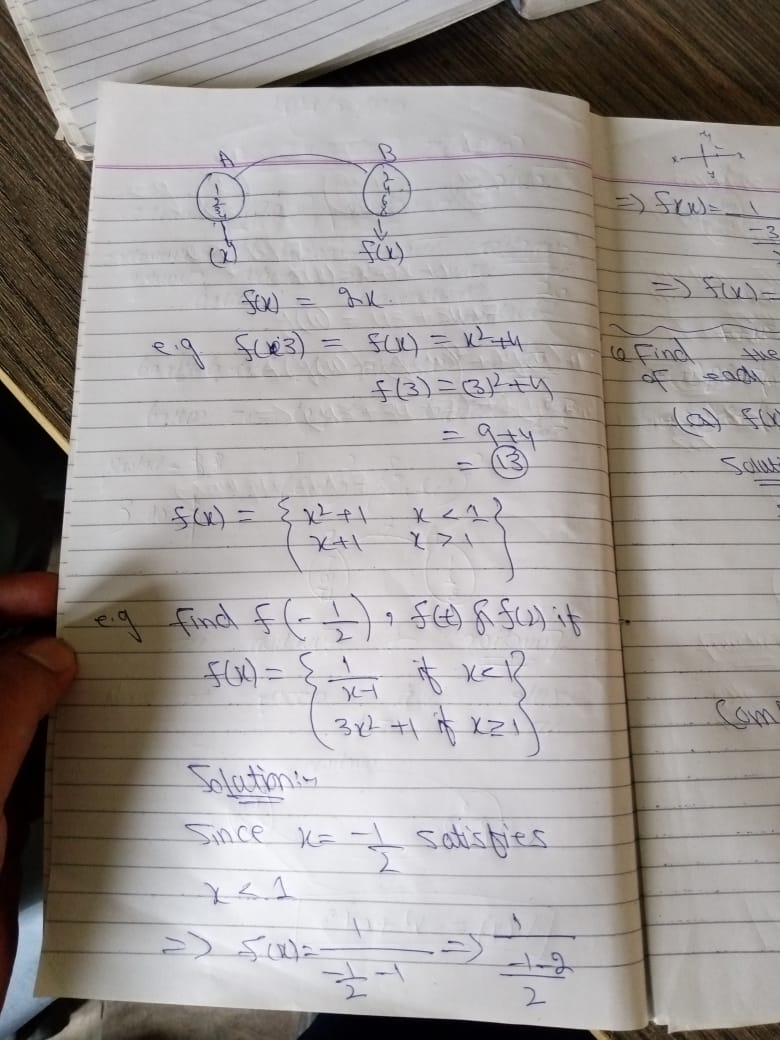 A B
1 2
2 4
3 6
(x) f(x)
f(x) = 2x
e.g f(x=3) = f(x) = x²+4
f(3) = (3)²+4
= 9+4
= 13
f(x) = { x²+1 x < 1
x+1 x > 1 }
e.g find f(-1/2), f(t) & f(2) if
f(x) = { 1/(x-1) if x<1
3x²+1 if x≥1 }
Solution:-
Since x = -1/2 satisfies
x < 1
=> f(x) = 1/(-1/2 - 1) => 1/((-1-2)/2)
x
=> f(x) = 1
-3
=> f(x) =
Q Find the
of each
(a) f(x
Solut
Com